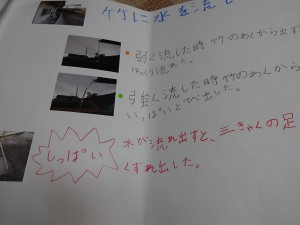 竹に水を流し
弱く流した時竹のわくから出す
ゆっくり流れた。
強く流した時竹のわくから
いっぱいとび出した。
しっぱい
水が流れ出すと、三きゃくの足
くずれ出した。